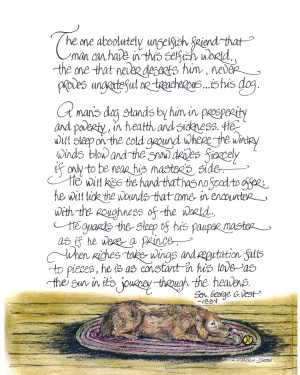 The one absolutely unselfish friend that
man can have in this selfish world,,
the one that never deserts him, never
proves ungrateful or treacherous...is his dog.
A man's dog stands by him in prosperity
and poverty,, in health and sickness. He
will sleep on the cold ground where the wintry
winds blow and the snow drives fiercely
if only to be near his master's side.
He will kiss the hand that has no food to offer;
he will lick the wounds that come in encounter
with the roughness of the world.
He guards the sleep of his pauper master
as if he were a prince.
When riches take wings and reputation falls
to pieces, he is as constant in his love as
the sun in it's journey through the heavens.
Sen. George G. Vest
-1884